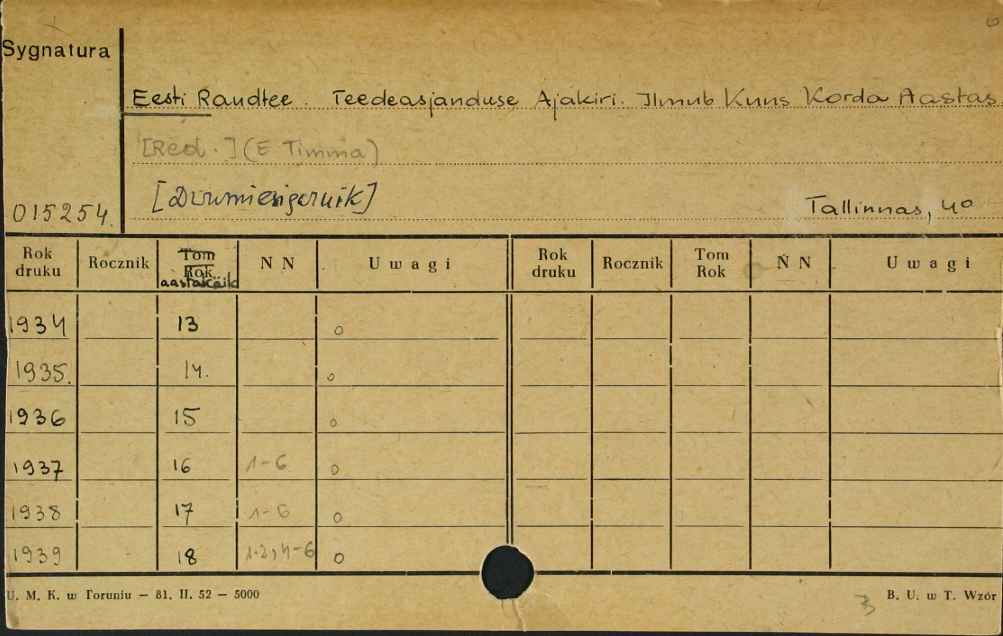 6
Sygnatura
Eesti Raudtee. Teedeasjanduse Ajakiri. Ilmub Kuus Korda Aastas.
[Red.] (E Timma)
[Dwumiesięcznik]
015254.
Tallinnas, 4º
Rok druku Rocznik Tom Rok aastakäik N N Uwagi Rok druku Rocznik Tom Rok N N Uwagi
1934 13 o
1935. 14. o
1936 15 o
1937 16 1-6 o
1938 17 1-6 o
1939 18 1-2, 4-6 o
U. M. K. w Toruniu — 81. II. 52 — 5000
B. U. w T. Wzór
3